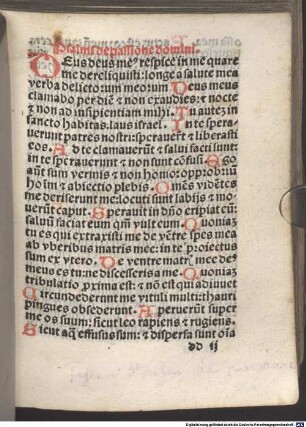 Psalmi de passione domini.
Deus deus me⁹ respice in me quare
me dereliquisti: longe a salute mea
verba delictorum meorum Deus meus
clamabo per diē & non exaudies: & nocte
& non ad insipientiam mihi. Tu autez in
sancto habitas: laus israel. In te spera-
uerunt patres nostri: sperauerūt & liberasti
eos. Ad te clamauerūt & salui facti sunt:
in te sperauerunt & non sunt cōfusi. Ego
aūt sum vermis & non homo: opprobriū
hoīm & abiectio plebis. Omēs vidētes
me deriserunt me: locuti sunt labijs & mo-
uerūt caput. Sperauit in dn̄o eripiat eū:
saluū faciat eum qm̄ vult eum. Quoniaz
tu es qui extraxisti me de vētre spes mea
ab vberibus matris mee: in te proiectus
sum ex vtero. De ventre matr̄ mee de⁹
meus es tu: ne discesseris a me. Quoniaz
tribulatio ꝓxima est: & nō est qui adiuuet
Circundederunt me vituli multi: thauri
pingues obsederunt. Aperuerūt super
me os suum: sicut leo rapiens & rugiens.
Sicut aq̄ effusus sum: & dispersa sunt oīa
dd ij